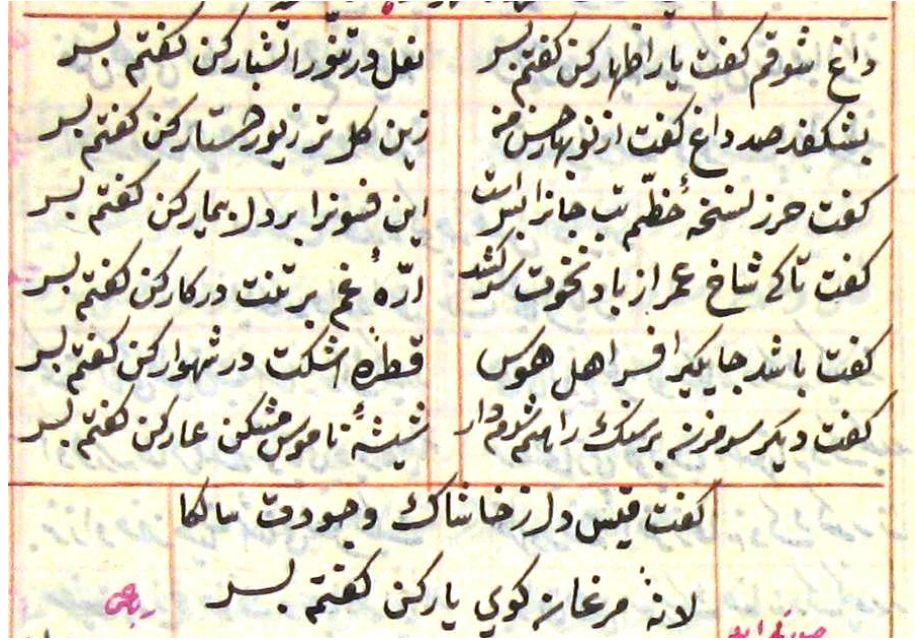 داغ شوقم گفت یار اظهار کن گفتم بسر
نعل در تنور آتشبار کن گفتم بسر
بشکفد صد داغ گفت از نوبهار حسن من
زین گل تر زیور دستار کن گفتم بسر
گفت حرز نسخهٔ خطم تب جانرا بس است
این فسونرا بر دل بیمار کن گفتم بسر
گفت تا کی شاخ عمر از باد نخوت سر کشد
ارّهٔ غم بر تنت در کار کن گفتم بسر
گفت باشد جایگیر افسر اهل هوس
قطرهٔ اشکت در شهوار کن گفتم بسر
گفت دیگر سر مزن بر سنگ راهم شرم دار
شیشهٔ ناموس مشکن عار کن گفتم بسر
گفت قیس دل ز خاشاک وجودت سالکا
لانهٔ مرغان کوی یار کن گفتم بسر
رباعی